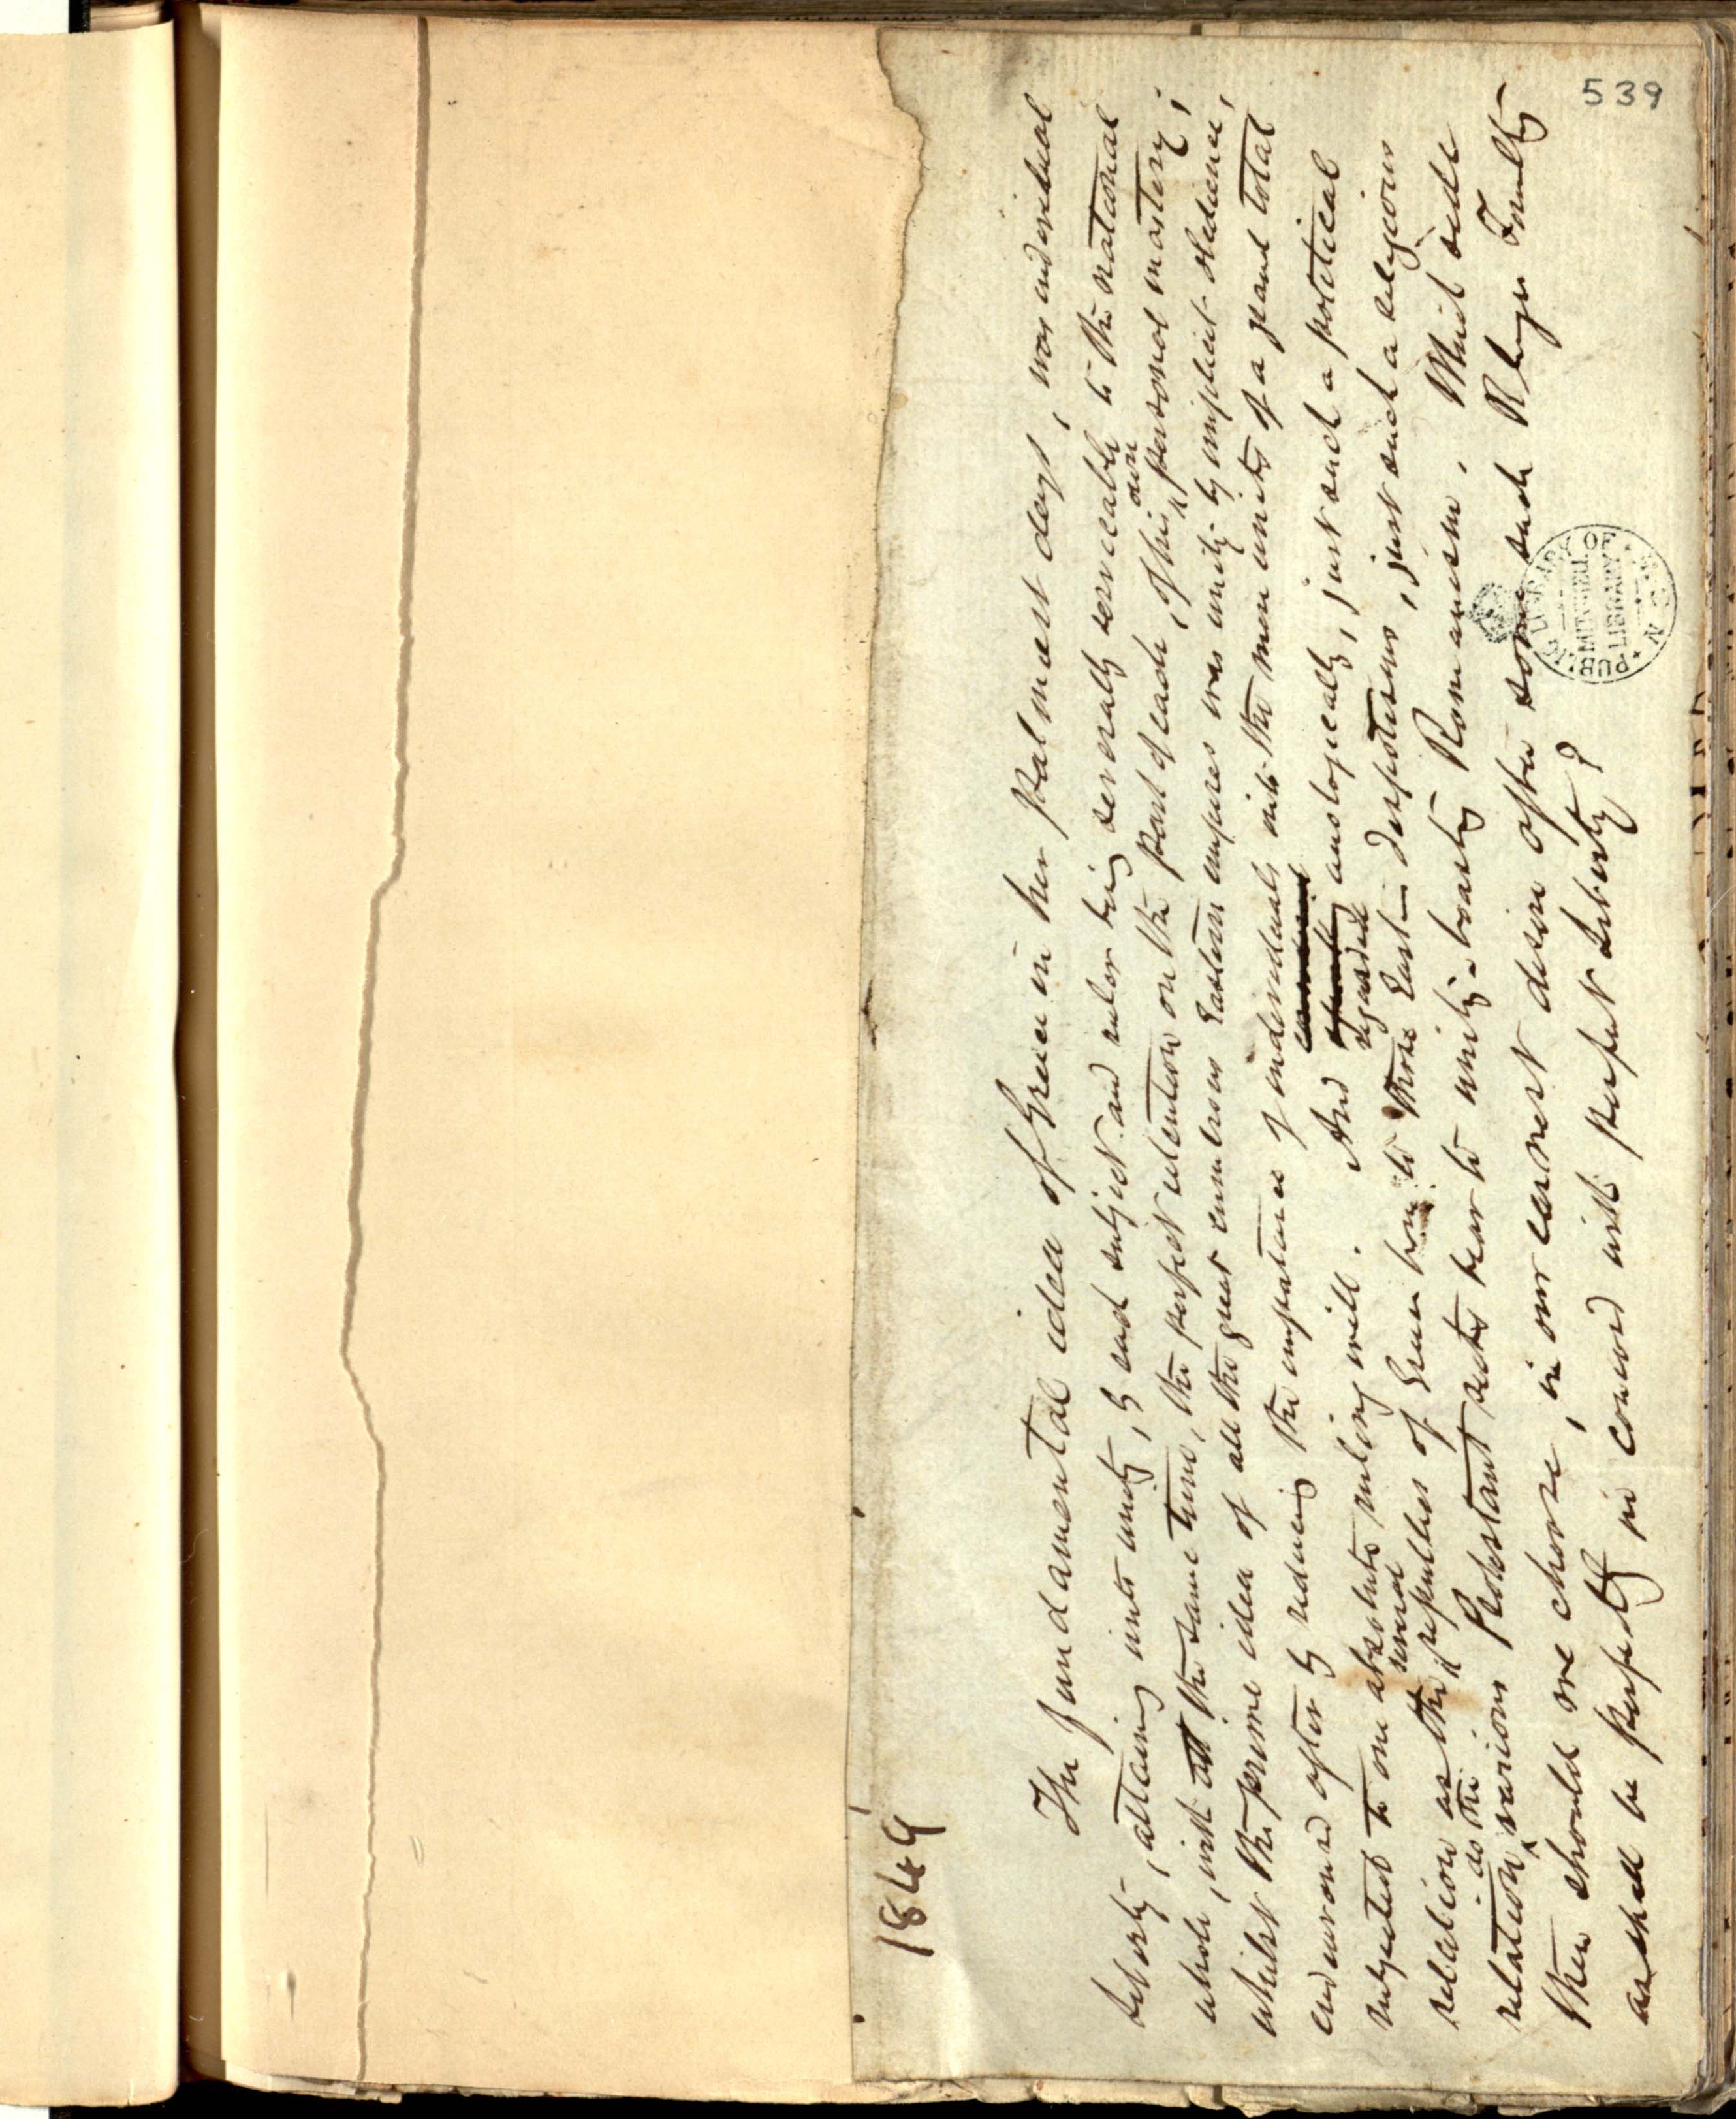 539
1849
The fundamental idea of Greece in her palmiest days, was individual
liberty, attaining unto unity, by each subject and ruler being severally serviceable to the national
whole, with at the same time, the perfect retention on the part of each, of his own personal mastery;
whilst the prime idea of all the great cumbrous Eastern empires was unity by implicit obedience,
endeavoured after by reducing the importance of individuals into the mere units of a grand total
subjected to one absolute ruling will. And regarded analogically, just such a political
relation as the several republics of Greece bore to those Eastern despotisms, just such a religious
relation do the various Protestant sects bear to unity-boasting Romanism. Which side
then should we choose, in our earnest desire after some such Religious
as shall be perfectly in concord with perfect Liberty?
PUBLIC LIBRARY OF N.S.W.
MITCHELL
LIBRARY